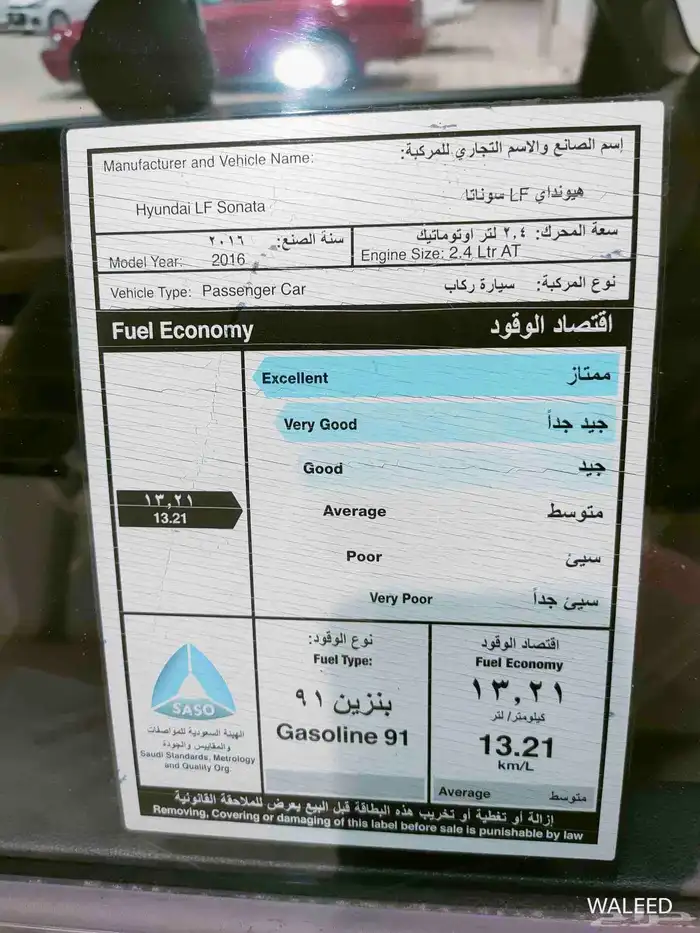 Manufacturer and Vehicle Name: إسم الصانع والاسم التجاري للمركبة:
Hyundai LF Sonata هيونداي LF سوناتا
سنة الصنع: ٢٠١٦ سعة المحرك: ٢,٤ لتر اوتوماتيك
Model Year: 2016 Engine Size: 2.4 Ltr AT
Vehicle Type: Passenger Car نوع المركبة: سيارة ركاب
Fuel Economy اقتصاد الوقود
Excellent ممتاز
Very Good جيد جداً
Good جيد
١٣,٢١
13.21
Average متوسط
Poor سيئ
Very Poor سيئ جداً
SASO
الهيئة السعودية للمواصفات
والمقاييس والجودة
Saudi Standards, Metrology
and Quality Org.
نوع الوقود:
Fuel Type:
بنزين ٩١
Gasoline 91
اقتصاد الوقود
Fuel Economy
١٣,٢١
كيلومتر/ لتر
13.21
km/L
Average متوسط
إزالة أو تغطية أو تخريب هذه البطاقة قبل البيع يعرض للملاحقة القانونية
Removing, Covering or damaging of this label before sale is punishable by law
WALEED
حراج